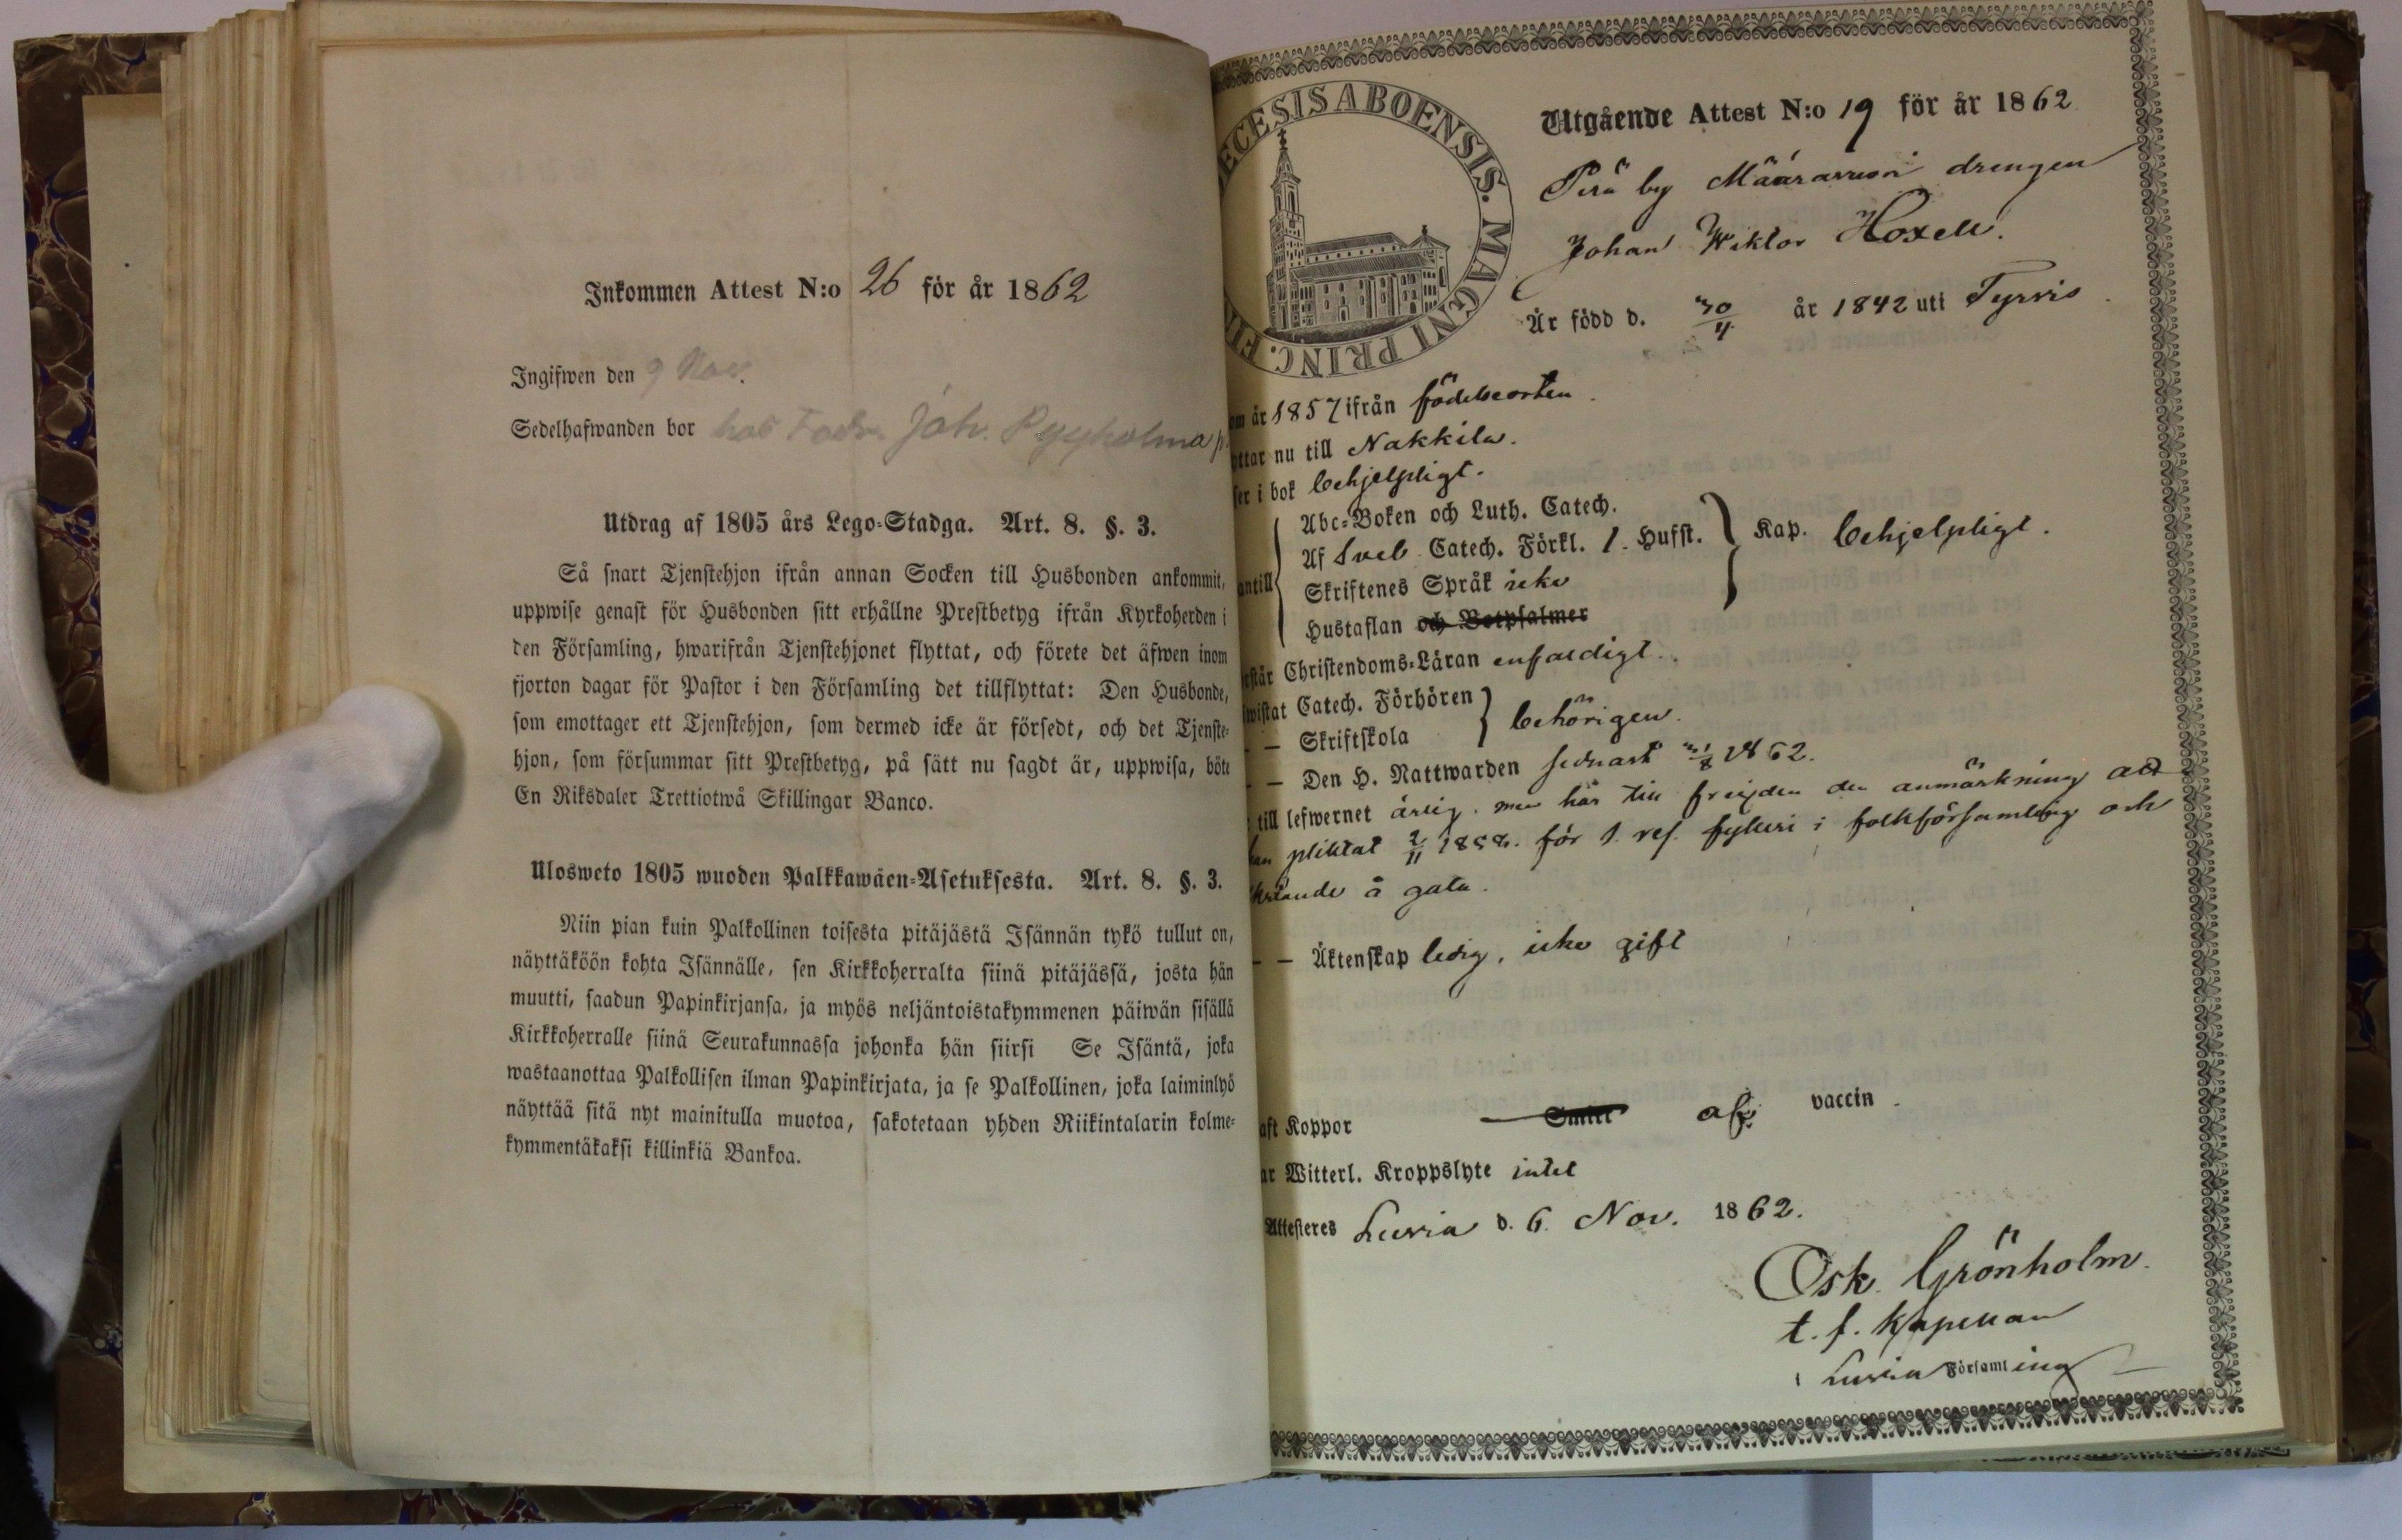 Inkommen Attest N:o 26 för år 1862
Ingifwen den 9 Nov.
Sedelhafwanden bor hos Joh. Pyyholma
Utdrag af 1805 års Lego-Stadga. Art. 8. §. 3.
Så snart Tjenstehjon ifrån annan Socken till Husbonden ankommit,
uppwise genast för Husbonden sitt erhållne Prestbetyg ifrån Kyrkoherden i
den Församling, hwarifrån Tjenstehjonet flyttat, och förete det äfwen inom
fjorton dagar för Pastor i den Församling det tillflyttat: Den Husbonde,
som emottager ett Tjenstehjon, som dermed icke är försedt, och det Tjenste-
hjon, som försummar sitt Prestbetyg, på sätt nu sagdt är, uppwisa, böte
En Riksdaler Trettiotwå Skillingar Banco.
Ulosweto 1805 wuoden Palkkawäen-Asetuksesta. Art. 8. §. 3.
Niin pian kuin Palkollinen toisesta pitäjästä Isännän tykö tullut on,
näyttäköön kohta Isännälle, sen Kirkkoherralta siinä pitäjässä, josta hän
muutti, saadun Papinkirjansa, ja myös neljäntoistakymmenen päiwän sisällä
Kirkkoherralle siinä Seurakunnassa johonka hän siirsi Se Isäntä, joka
wastaanottaa Palkollisen ilman Papinkirjata, ja se Palkollinen, joka laiminlyö
näyttää sitä nyt mainitulla muotoa, sakotetaan yhden Riikintalarin kolme-
kymmentäkaksi killinkiä Bankoa.
ECESIS ABOENSIS. MAGNI PRINC. FI
Utgående Attest N:o 19 för år 1862
by drengen
Johan Wiktor Hoxell.
Är född d. 30/4 år 1842 uti Tyrvis
om år 1857 ifrån födelseorten.
yttar nu till Nakkila.
ser i bok behjelpligt.
Abc-Boken och Luth. Catech.
Af Sveb Catech. Förkl. 1. Hufst. Kap. behjelpligt.
antill
Skriftenes Språk icke
Hustaflan och Botpsalmer
rstår Christendoms-Läran enfaldigt.
wistat Catech. Förhören
– – Skriftskola behörigen.
– – Den H. Nattwarden sednast 31/8 1862.
till lefwernet ärlig, men har till frejden den anmärkning att
han pliktat 2/11 1858. för 1. res. fylleri i folkförsamling och
å gata.
– – Äktenskap ledig, icke gift
aft Koppor Smitt af vaccin.
ar Witterl. Kroppslyte intet
Attesteres Luvia d. 6. Nov. 1862.
Osk. Grönholm.
t. f. Kapellan
i Luvia Församling